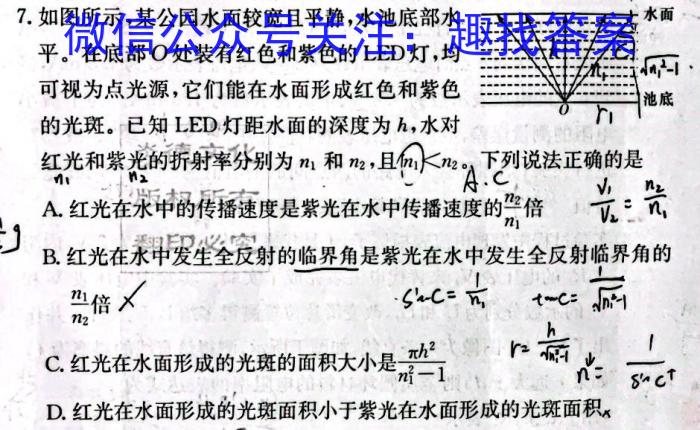 7. 如图所示,某公园水面较宽且平静,水池底部水
微信公众号关注:趣找答案
平。在底部O处装有红色和紫色的LED灯,均
可视为点光源,它们能在水面形成红色和紫色
的光斑。已知LED灯距水面的深度为h,水对
红光和紫光的折射率分别为n₁和n₂,且n₁<n₂。下列说法正确的是
水面
√n₁²-1
n₁
O
r₁
池底
n₁ n₂
A.C
版权所有
翻印必究
A. 红光在水中的传播速度是紫光在水中传播速度的n₂/n₁倍
V₁/V₂ = n₂/n₁
B. 红光在水中发生全反射的临界角是紫光在水中发生全反射临界角的
n₁/n₂倍 ×
·sinC = 1/n₁
tanC = 1/√n₁²-1
C. 红光在水面形成的光斑的面积大小是πh²/(n₁²-1)
r = h/√n₁²-1
n↓ = 1/sinC↑
D. 红光在水面形成的光斑面积小于紫光在水面形成的光斑面积